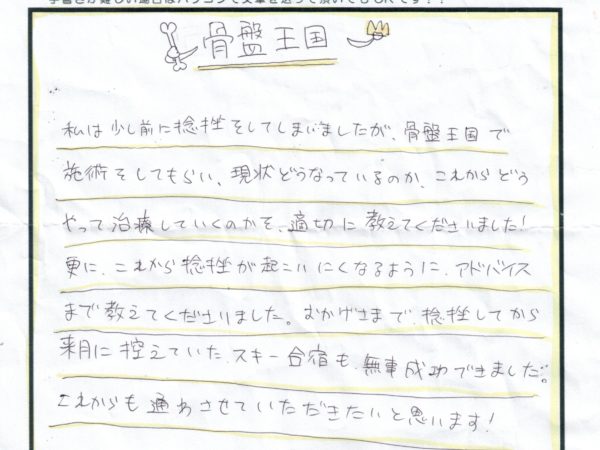 手書きが難しい場合はパソコンで文章を送って頂いてもOKです!!
骨盤王国
私は少し前に捻挫をしてしまいましたが、骨盤王国で
施術をしてもらい、現状どうなっているのか、これからどう
やって治療していくのかを、適切に教えてくださいました!
更に、これから捻挫が起こりにくくなるように、アドバイス
まで教えてくださりました。おかげさまで、捻挫してから
来月に控えていた、スキー合宿も、無事成功できました。
これからも通わさせていただきたいと思います!